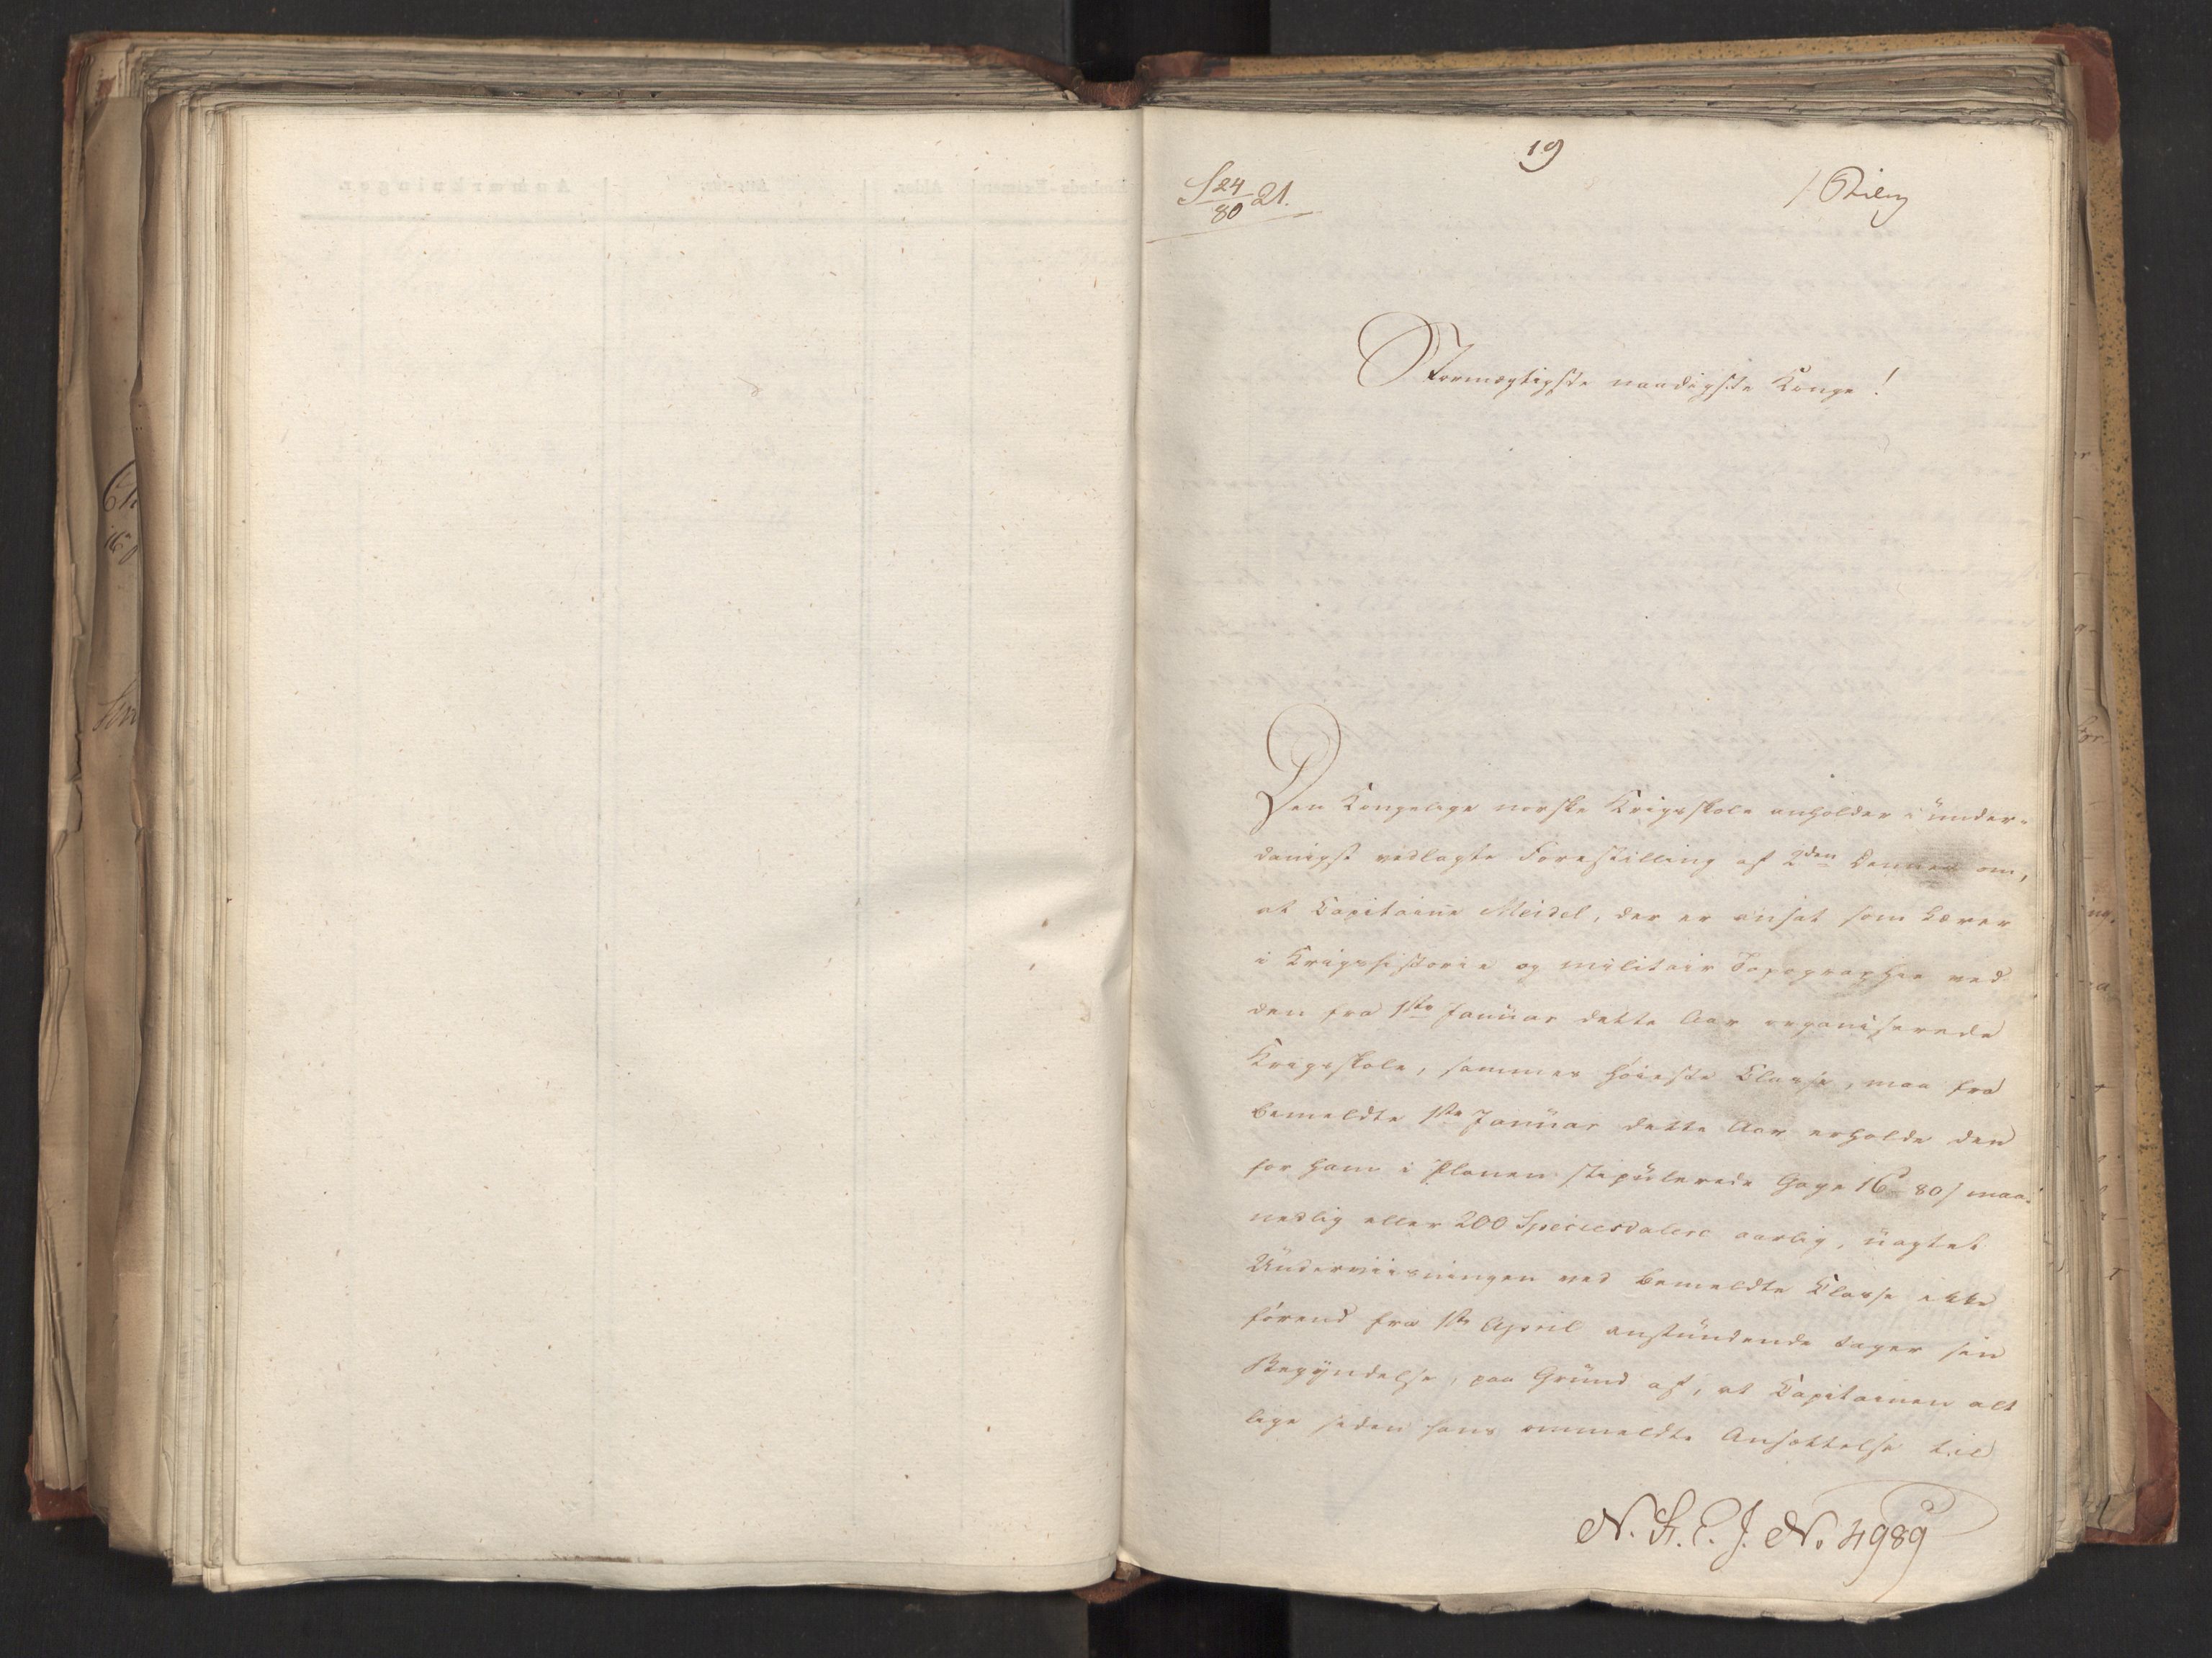 19
S 24/80 21.
1 Bilag
Stormægtigste naadigste Konge!
Den Kongelige norske Krigsskole anholder i under-
danigst vedlagte Forestilling af 2den dennes om,
at Capitaine Meidel, der er ansat som Lærer
i Krigshistorie og militair Topographie ved
den fra 1ste Januar dette Aar organiserede
Krigsskole, sammes høieste Classe, maa fra
bemeldte 1ste Januar dette Aar erholde den
for ham i Planen stipulerede Gage 16 80 s maa-
nedlig eller 200 Speciesdalere aarlig, uagtet
Underviisningen ved bemeldte Classe ikke
førend fra 1ste April anstundende tager sin
Begyndelse, paa Grund af, at Capitainen alt
lige siden hans ommeldte Ansættelse til
N. St. E. J. No 4989